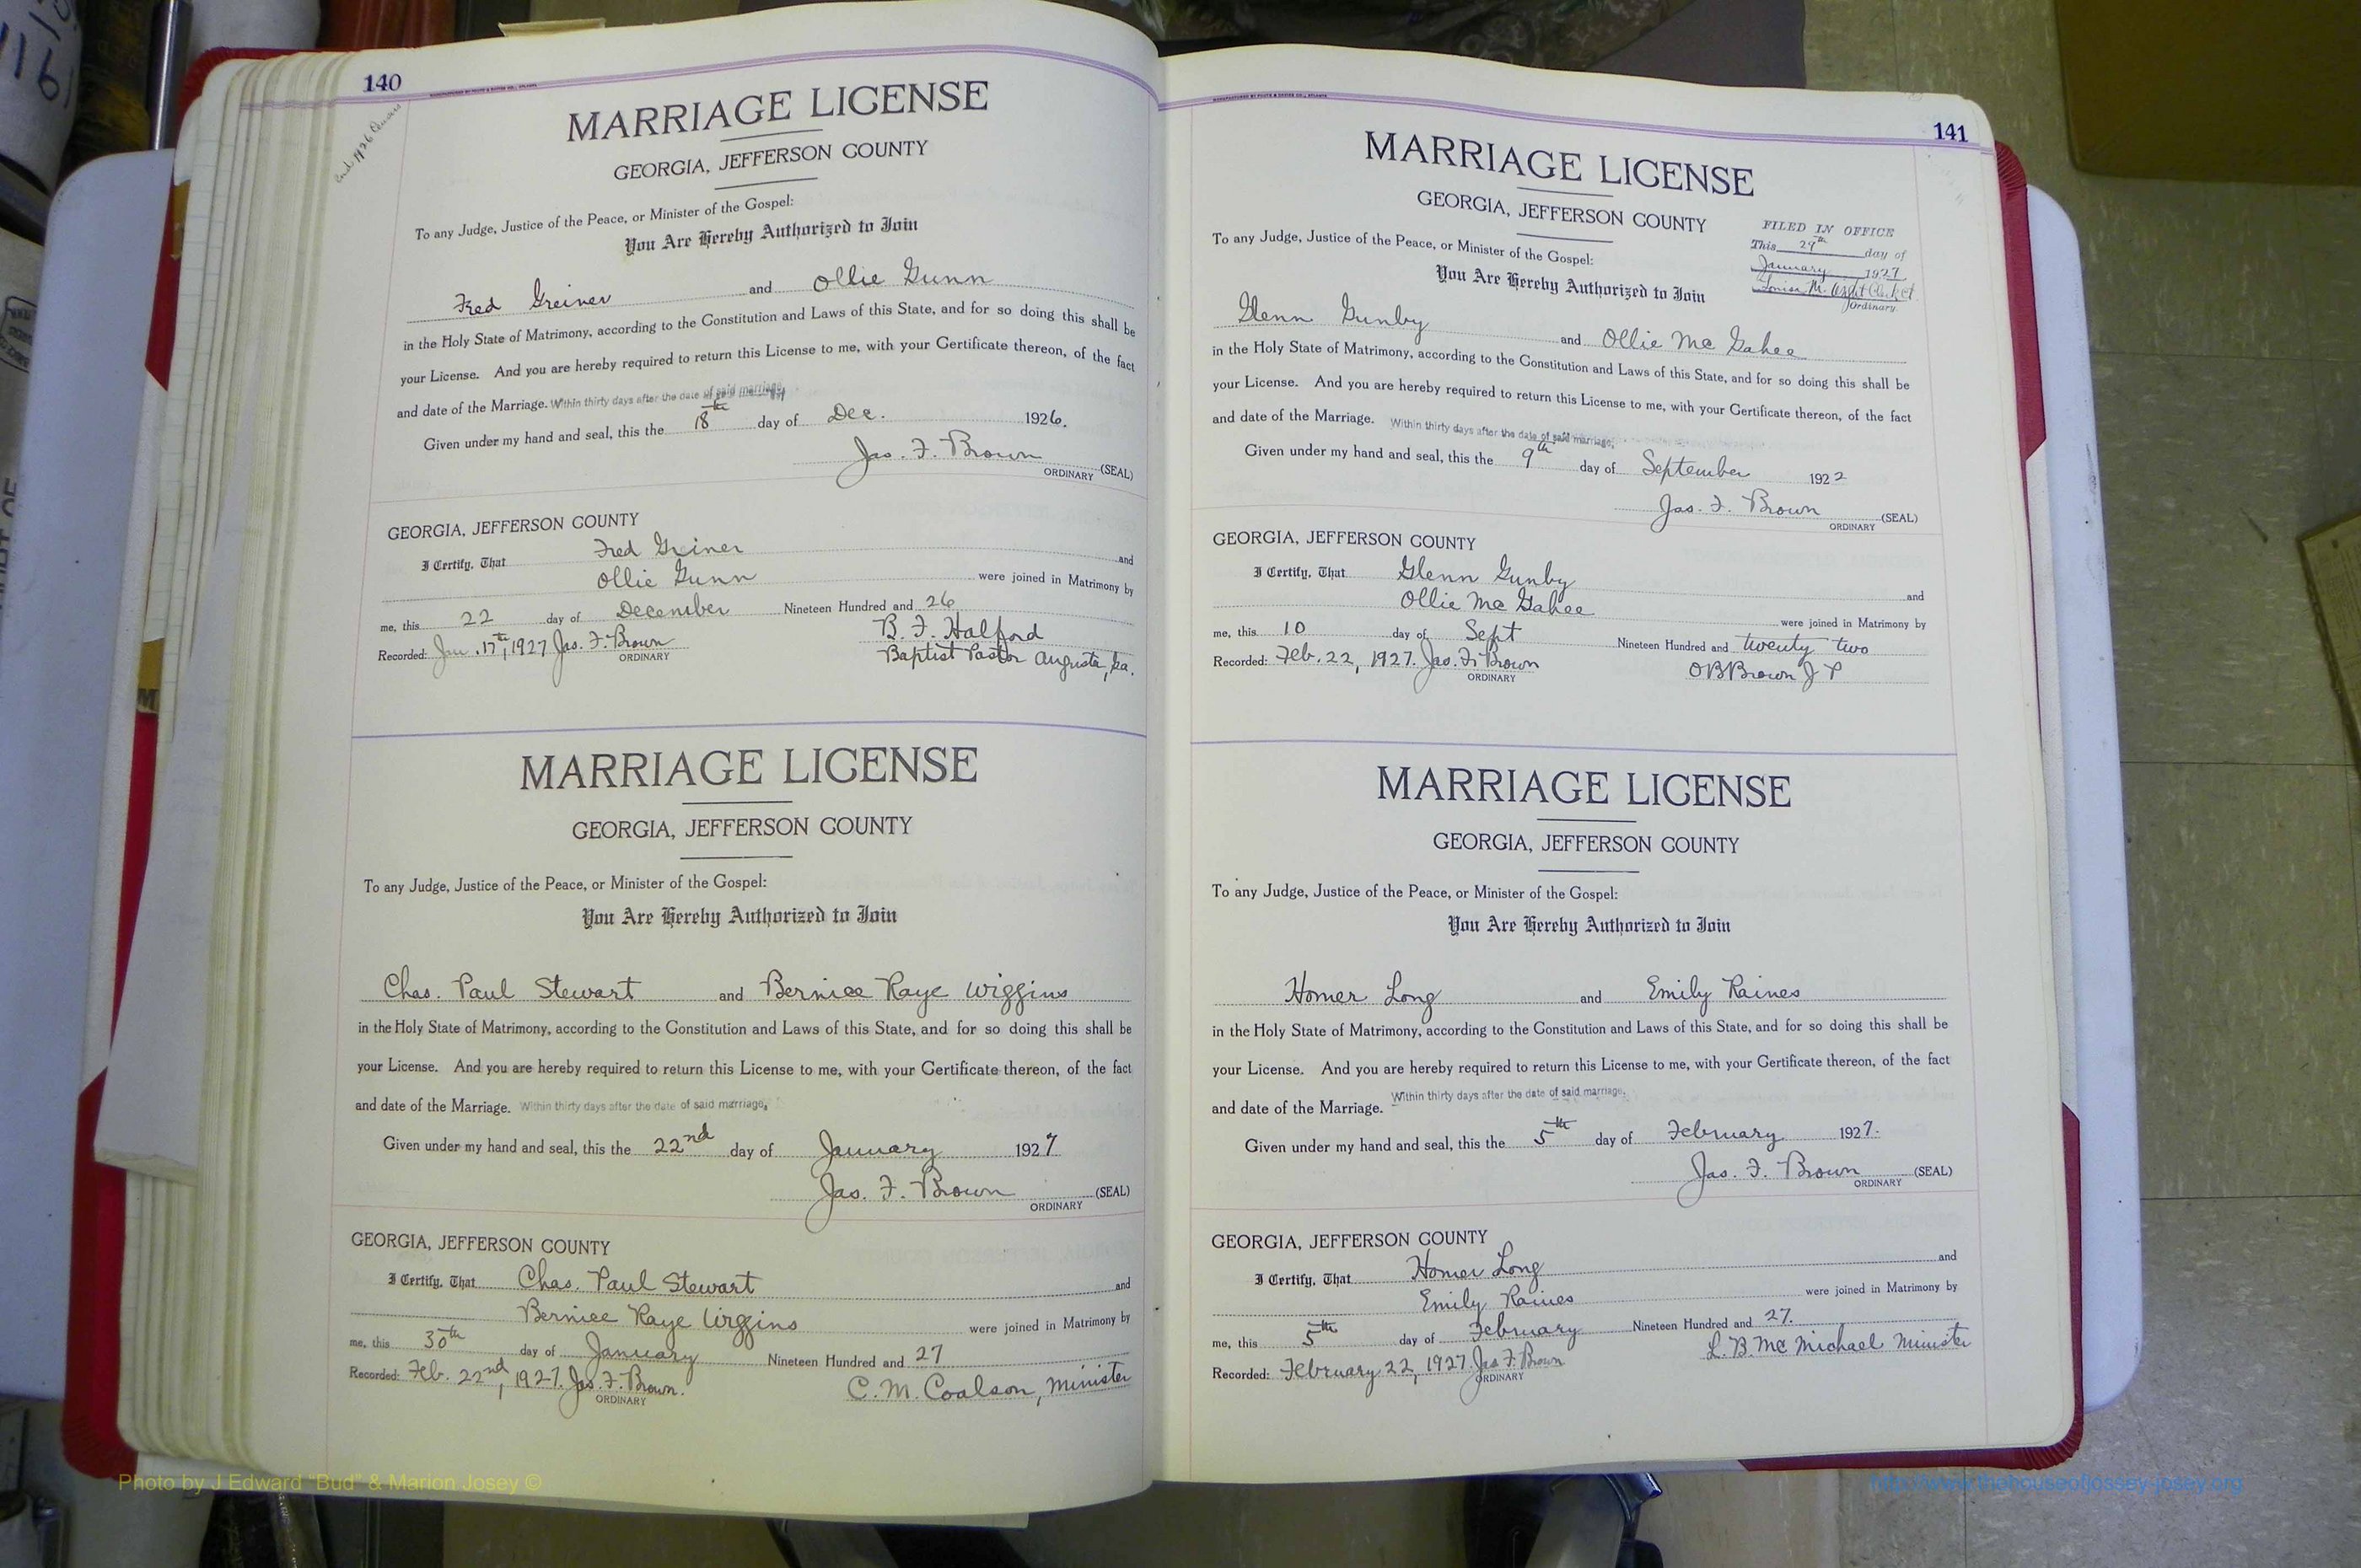 140
MARRIAGE LICENSE
GEORGIA, JEFFERSON COUNTY
To any Judge, Justice of the Peace, or Minister of the Gospel:
You Are Hereby Authorized to Join
Fred Greiner and Ollie Gunn
in the Holy State of Matrimony, according to the Constitution and Laws of this State, and for so doing this shall be
your License. And you are hereby required to return this License to me, with your Certificate thereon, of the fact
and date of the Marriage. Within thirty days after the date of said marriage,
Given under my hand and seal, this the 18th day of Dec. 1926.
Jas. F. Brown (SEAL)
ORDINARY
GEORGIA, JEFFERSON COUNTY
I Certify, That Fred Griner and
Ollie Gunn were joined in Matrimony by
me, this 22 day of December Nineteen Hundred and 26
B. F. Halford
Recorded: Jan. 17th, 1927 Jas. F. Brown Baptist Pastor Augusta, Ga.
ORDINARY
MARRIAGE LICENSE
GEORGIA, JEFFERSON COUNTY
To any Judge, Justice of the Peace, or Minister of the Gospel:
You Are Hereby Authorized to Join
Chas. Paul Stewart and Berniee Raye Wiggins
in the Holy State of Matrimony, according to the Constitution and Laws of this State, and for so doing this shall be
your License. And you are hereby required to return this License to me, with your Certificate thereon, of the fact
and date of the Marriage. Within thirty days after the date of said marriage,
Given under my hand and seal, this the 22nd day of January 1927
Jas. F. Brown (SEAL)
ORDINARY
GEORGIA, JEFFERSON COUNTY
I Certify, That Chas. Paul Stewart and
Berniee Raye Wiggins were joined in Matrimony by
me, this 30th day of January Nineteen Hundred and 27
Recorded: Feb. 22nd, 1927. Jas. F. Brown. C. M. Coalson, Minister
ORDINARY
141
MARRIAGE LICENSE
GEORGIA, JEFFERSON COUNTY
FILED IN OFFICE
This 29th day of
January 1927
Louise M.
Ordinary.
To any Judge, Justice of the Peace, or Minister of the Gospel:
You Are Hereby Authorized to Join
Glenn Gunby and Ollie Mc Gahee
in the Holy State of Matrimony, according to the Constitution and Laws of this State, and for so doing this shall be
your License. And you are hereby required to return this License to me, with your Certificate thereon, of the fact
and date of the Marriage. Within thirty days after the date of said marriage,
Given under my hand and seal, this the 9th day of September 1922
Jas. F. Brown (SEAL)
ORDINARY
GEORGIA, JEFFERSON COUNTY
I Certify, That Glenn Gunby and
Ollie Mc Gahee were joined in Matrimony by
me, this 10 day of Sept Nineteen Hundred and twenty two
Recorded: Feb. 22, 1927. Jas. F. Brown OBBrown J P
ORDINARY
MARRIAGE LICENSE
GEORGIA, JEFFERSON COUNTY
To any Judge, Justice of the Peace, or Minister of the Gospel:
You Are Hereby Authorized to Join
Homer Long and Emily Raines
in the Holy State of Matrimony, according to the Constitution and Laws of this State, and for so doing this shall be
your License. And you are hereby required to return this License to me, with your Certificate thereon, of the fact
and date of the Marriage. Within thirty days after the date of said marriage.
Given under my hand and seal, this the 5th day of February 1927.
Jas. F. Brown (SEAL)
ORDINARY
GEORGIA, JEFFERSON COUNTY
I Certify, That Homer Long and
Emily Raines were joined in Matrimony by
me, this 5th day of February Nineteen Hundred and 27.
Recorded: February 22, 1927. Jas F. Brown L. B. Mc Michael Minister
ORDINARY
Photo by J Edward "Bud" & Marion Josey ©
http://www.thehouseofjossey-josey.org